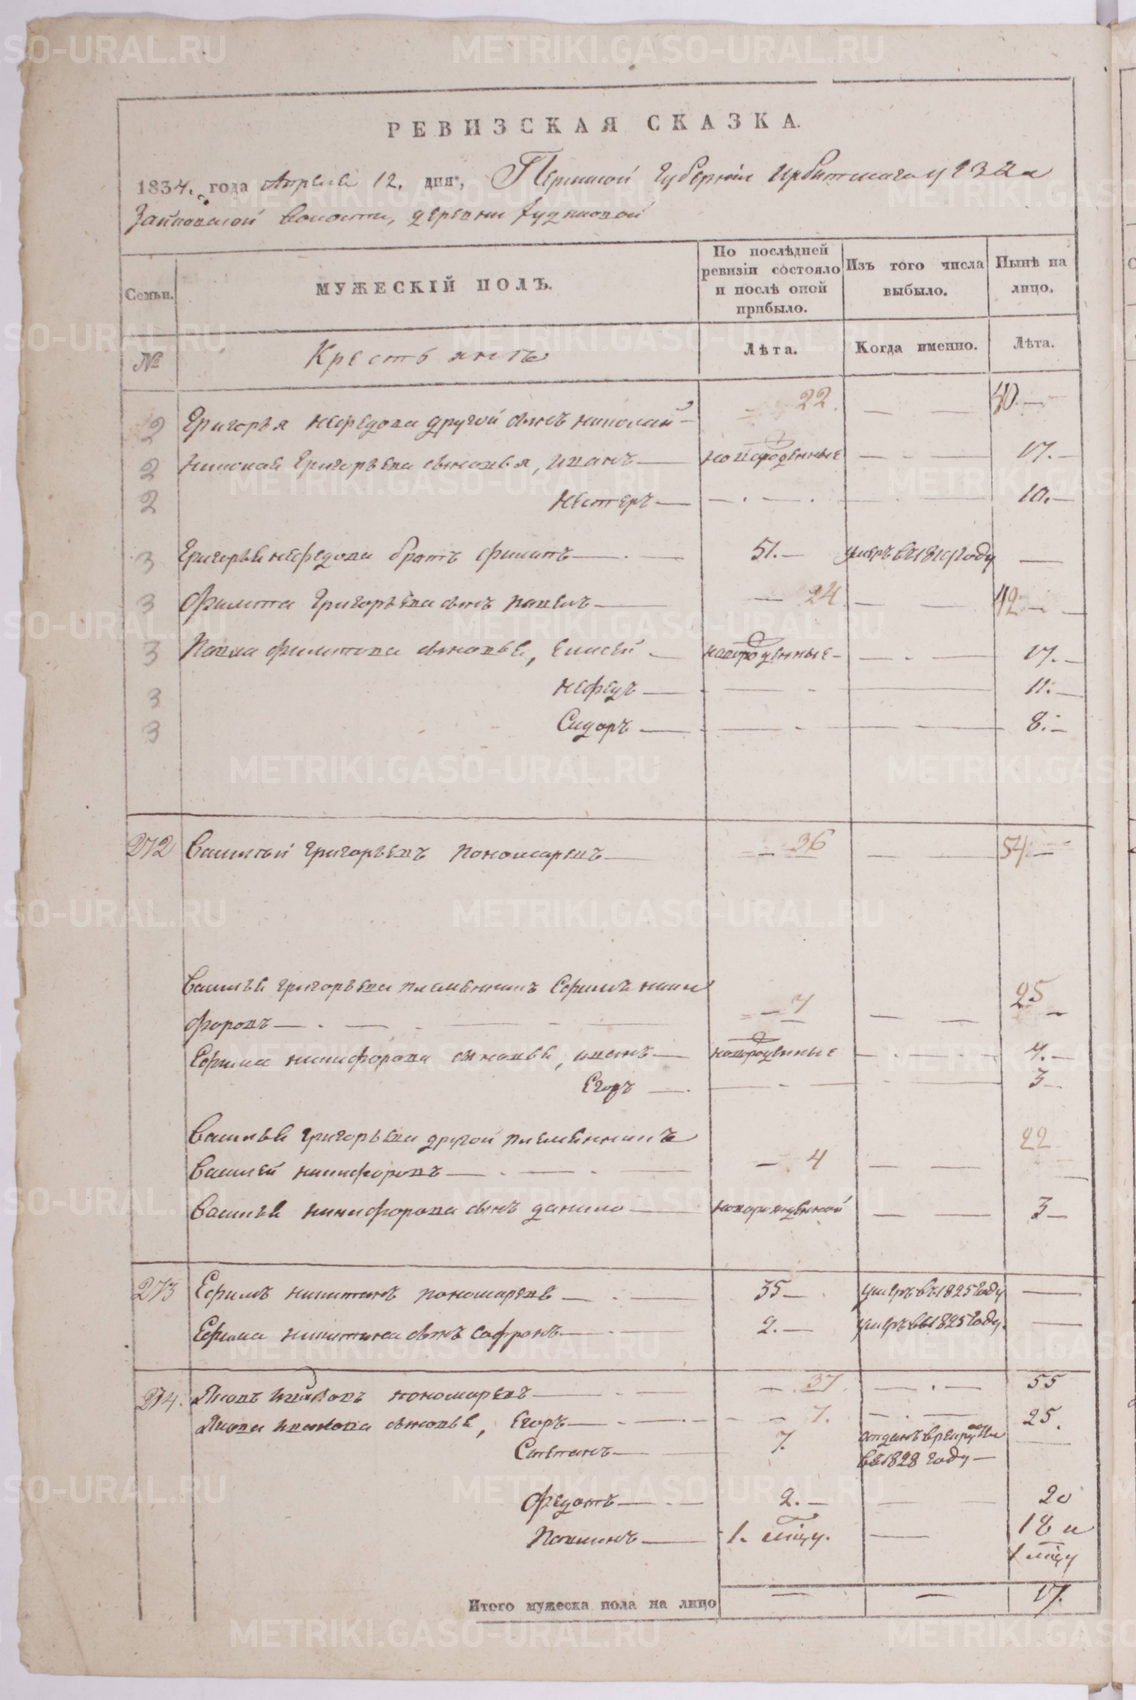 РЕВИЗСКАЯ СКАЗКА.
1834. года Апреля 12. дня, Пермской Губернии Ирбитскаго уезда
Зайковской волости, деревни
Семьи. МУЖЕСКІЙ ПОЛЪ. По послѣдней ревизіи состояло и послѣ оной прибыло. Изъ того числа выбыло. Нынѣ на лицо.
№ Крестьянъ Лѣта. Когда именно. Лѣта.
2 Григорья Нефедова другой сынъ Николай 22. 40.
2 Николая Григорьева сыновья, Иванъ новорожденные 17.
2 Нестеръ 10.
3 Григорья Нефедова братъ Филатъ 51. умеръ в 1819 году
3 Филата Григорьева сынъ Павелъ 24 42
3 Павла Филатова сыновья, Елисей новорожденные 17.
3 Нефедъ 11.
3 Сидоръ 8.
272 Василий Григорьевъ Пономаревъ 36 54
Василья Григорьева племянникъ Ефимъ Ники
форовъ 7 25
Ефима Никифорова сыновья, Иванъ новорожденные 4.
Егоръ 3
Василья Григорьева другой племянникъ 22
Василей Никифоровъ 4
Василья Никифорова сынъ Данило новорожденной 3
273 Ефимъ Никитинъ Пономаревъ 35 умеръ в 1825 году
Ефима Никитина сынъ Софронъ 2. умеръ в 1825 году.
274. Яковъ Ивановъ Пономаревъ 37. 55
Якова Иванова сыновья, Егоръ 7. 25.
Степанъ 7. отданъ в рекруты
в 1828 году
Федотъ 2. 20
1. мѣсцу. 18 и
1 мѣсцу
Итого мужеска пола на лицо 17.
METRIKI.GASO-URAL.RU